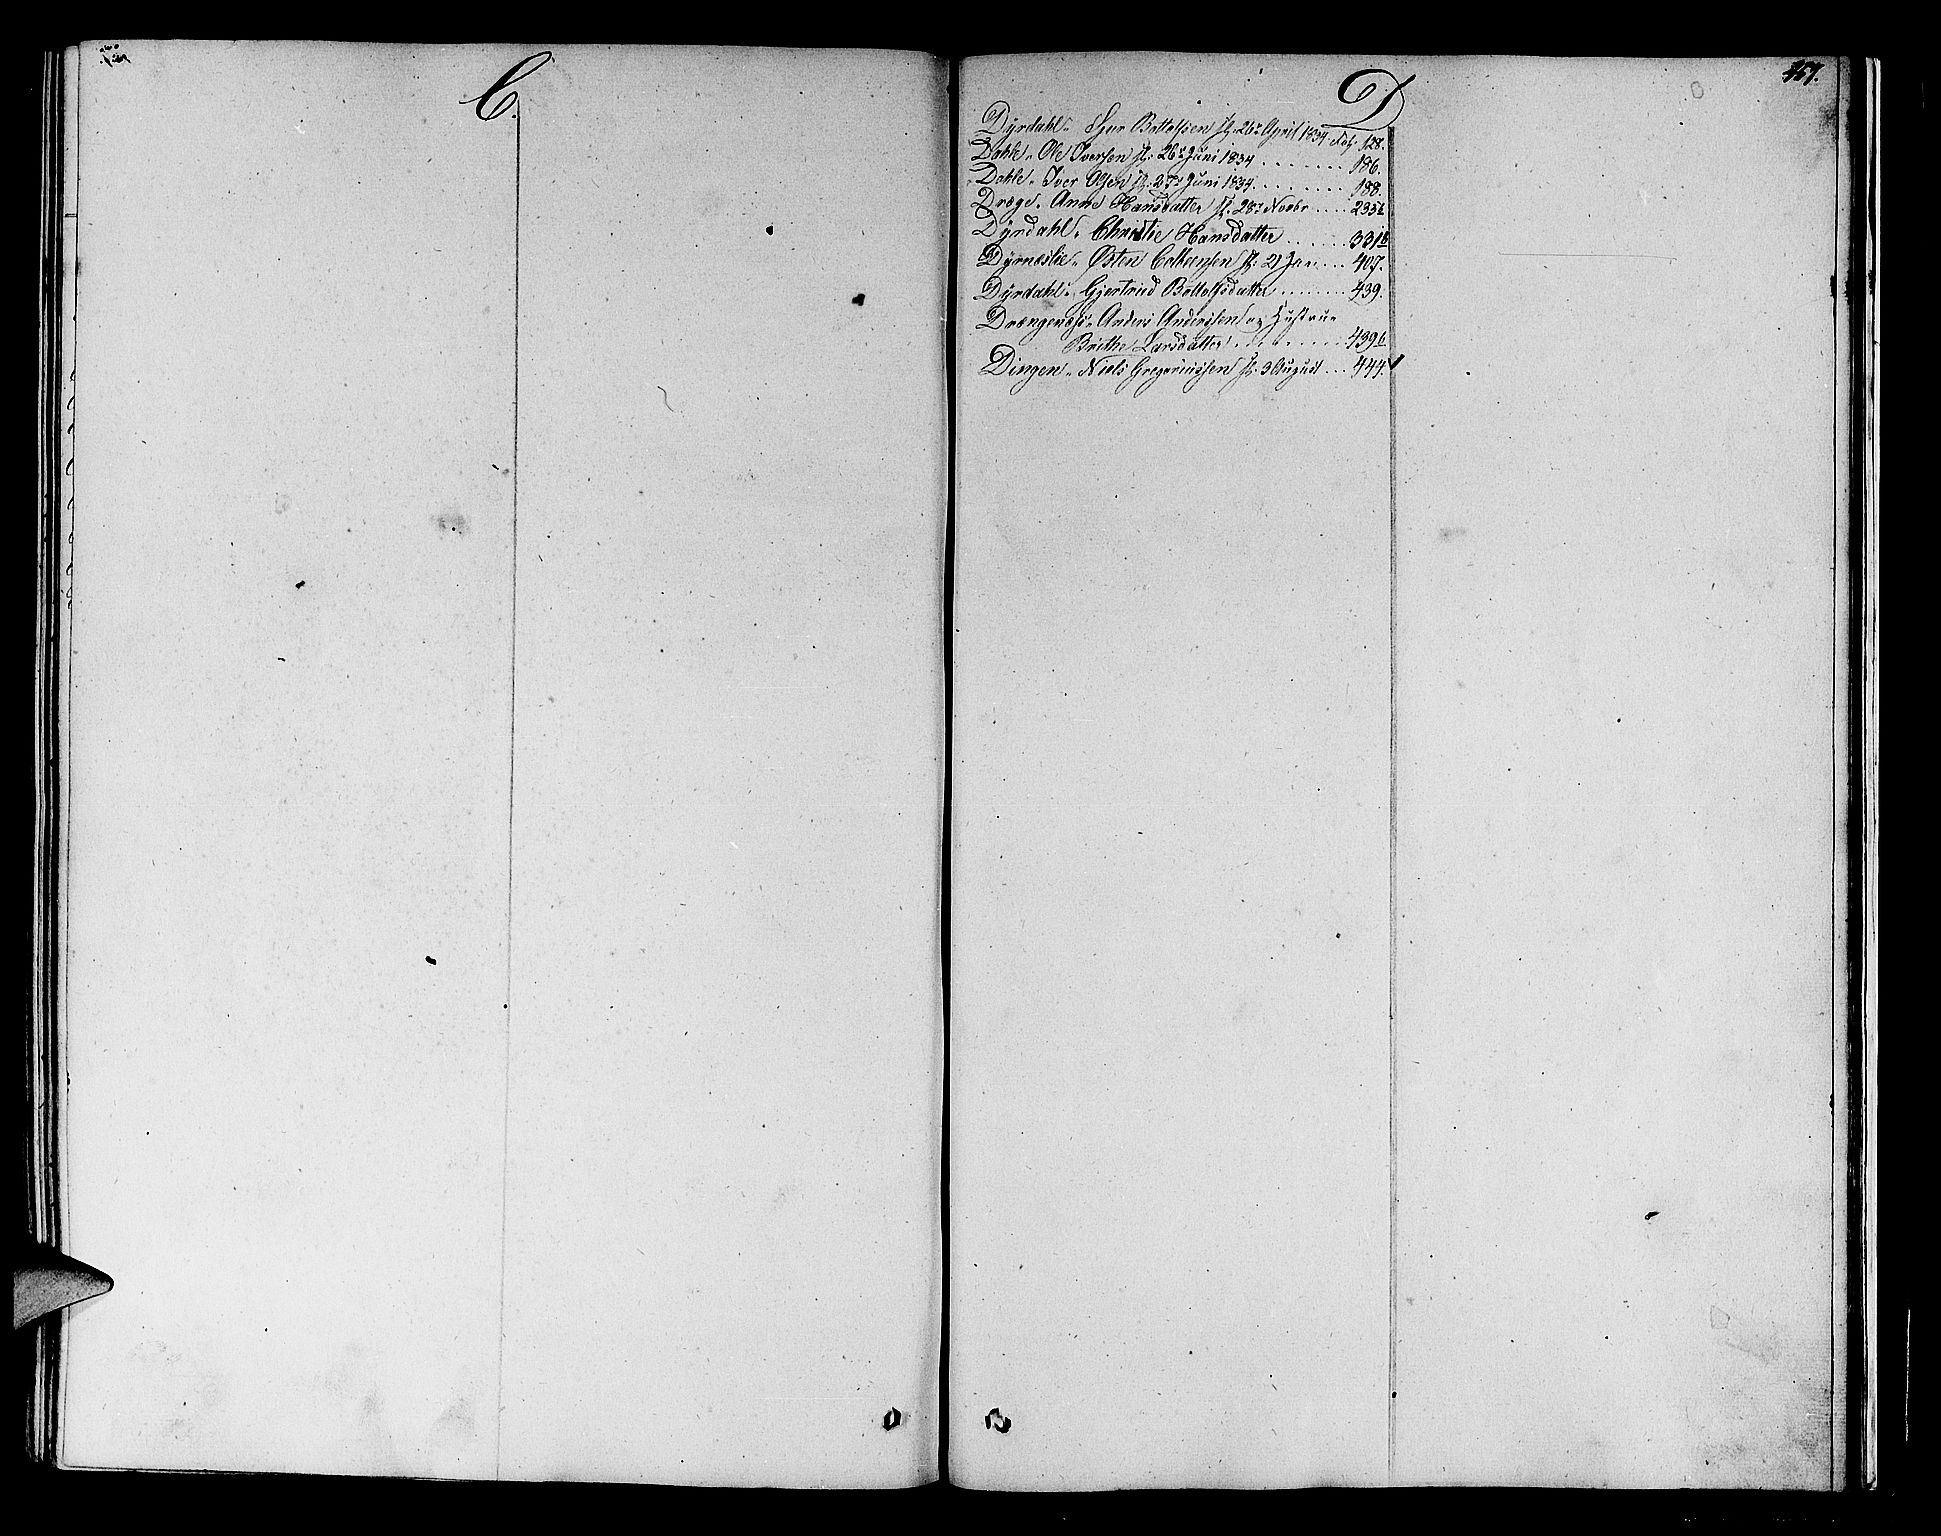 C.
D
457.
Dyrdahl. Sjur Bottolfsen st. 26de April 1834. Fol. 128.
Dahle. Ole Iversen st. 26de Juni 1834 . . . . . . . 186.
Dahle. Iver Olsen st. 27de Juni 1834 . . . . . . . . 188.
Dræge. Anne Hansdatter st. 28de Novbr . . . . 235b
Dyrdahl. Christie Hansdatter . . . . . . 331b
Dyrnæslie. Østen st. 21 Jan . . . 407.
Dyrdahl. Gjertrud Bottolfsdatter . . . . . . . 439.
Drængenæs. Anders Anderssen og Hustrue
Brithe Larsdatter . . . . . . . . . 439b
Dingen. Niels Gregoriussen st. 3 August . . . 444.